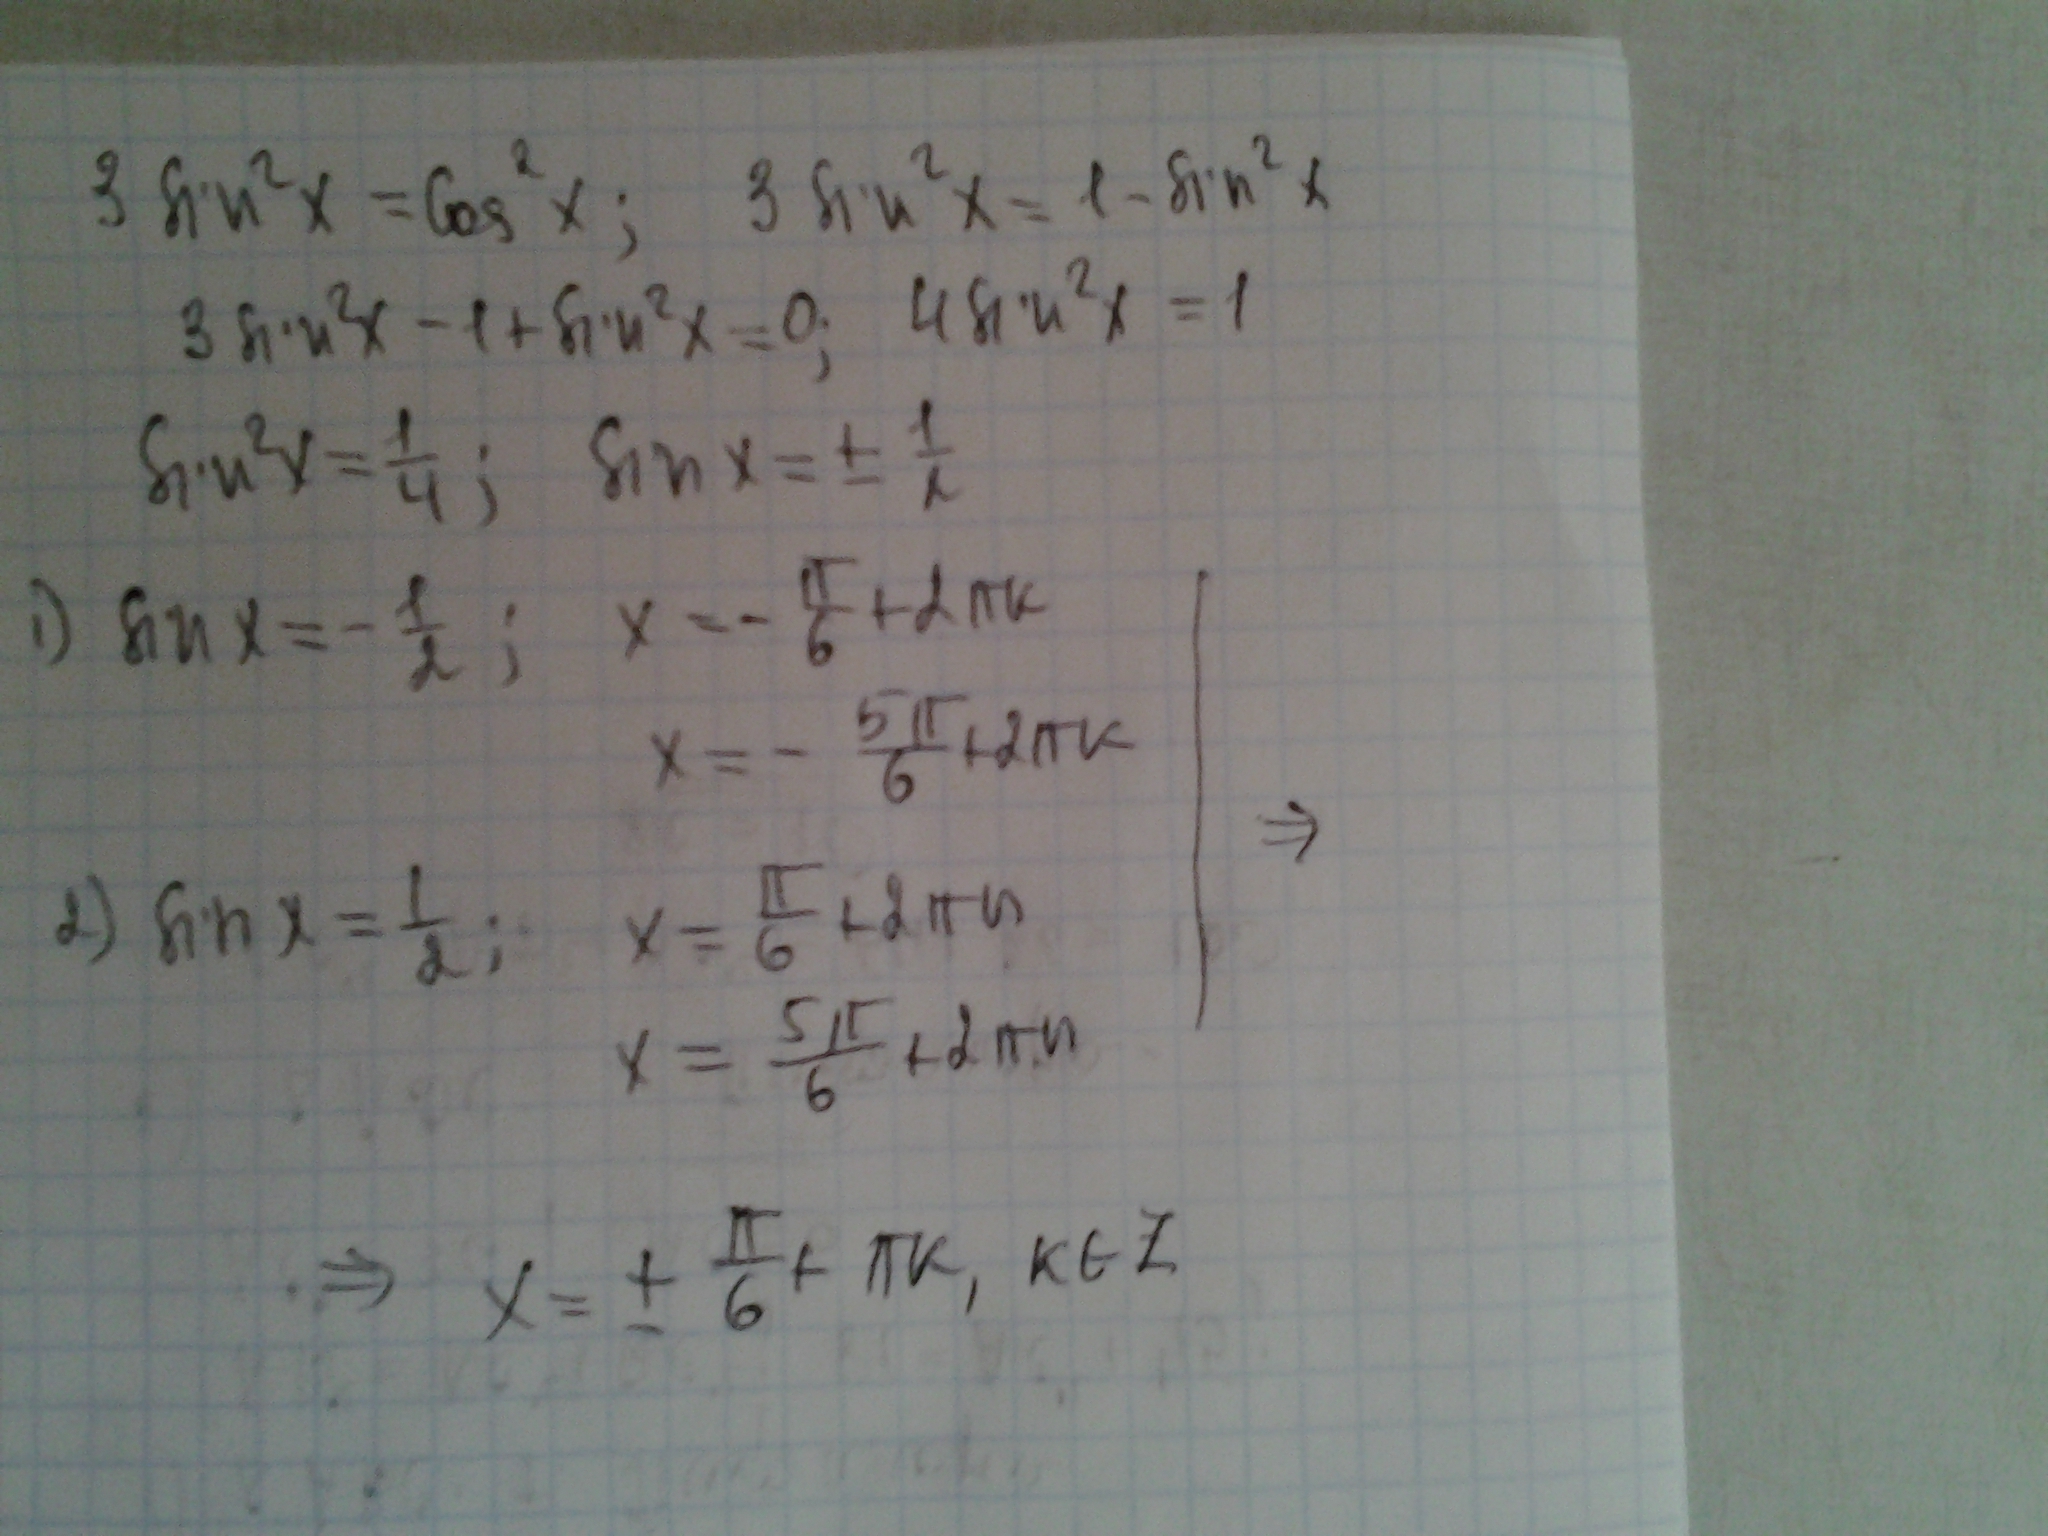 3 sin²x = cos²x; 3 sin²x = 1 - sin²x
3 sin²x - 1 + sin²x = 0; 4 sin²x = 1
sin²x = 1/4; sin x = ± 1/2
1) sin x = - 1/2; x = - π/6 + 2πk
x = - 5π/6 + 2πk
⇒
2) sin x = 1/2; x = π/6 + 2πn
x = 5π/6 + 2πn
⇒ x = ± π/6 + πk, k ∈ Z